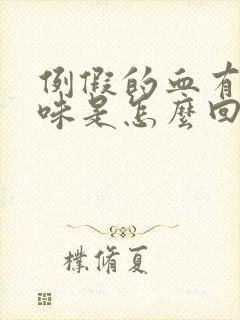 例假的血有
味是怎麼回
樸脩夏